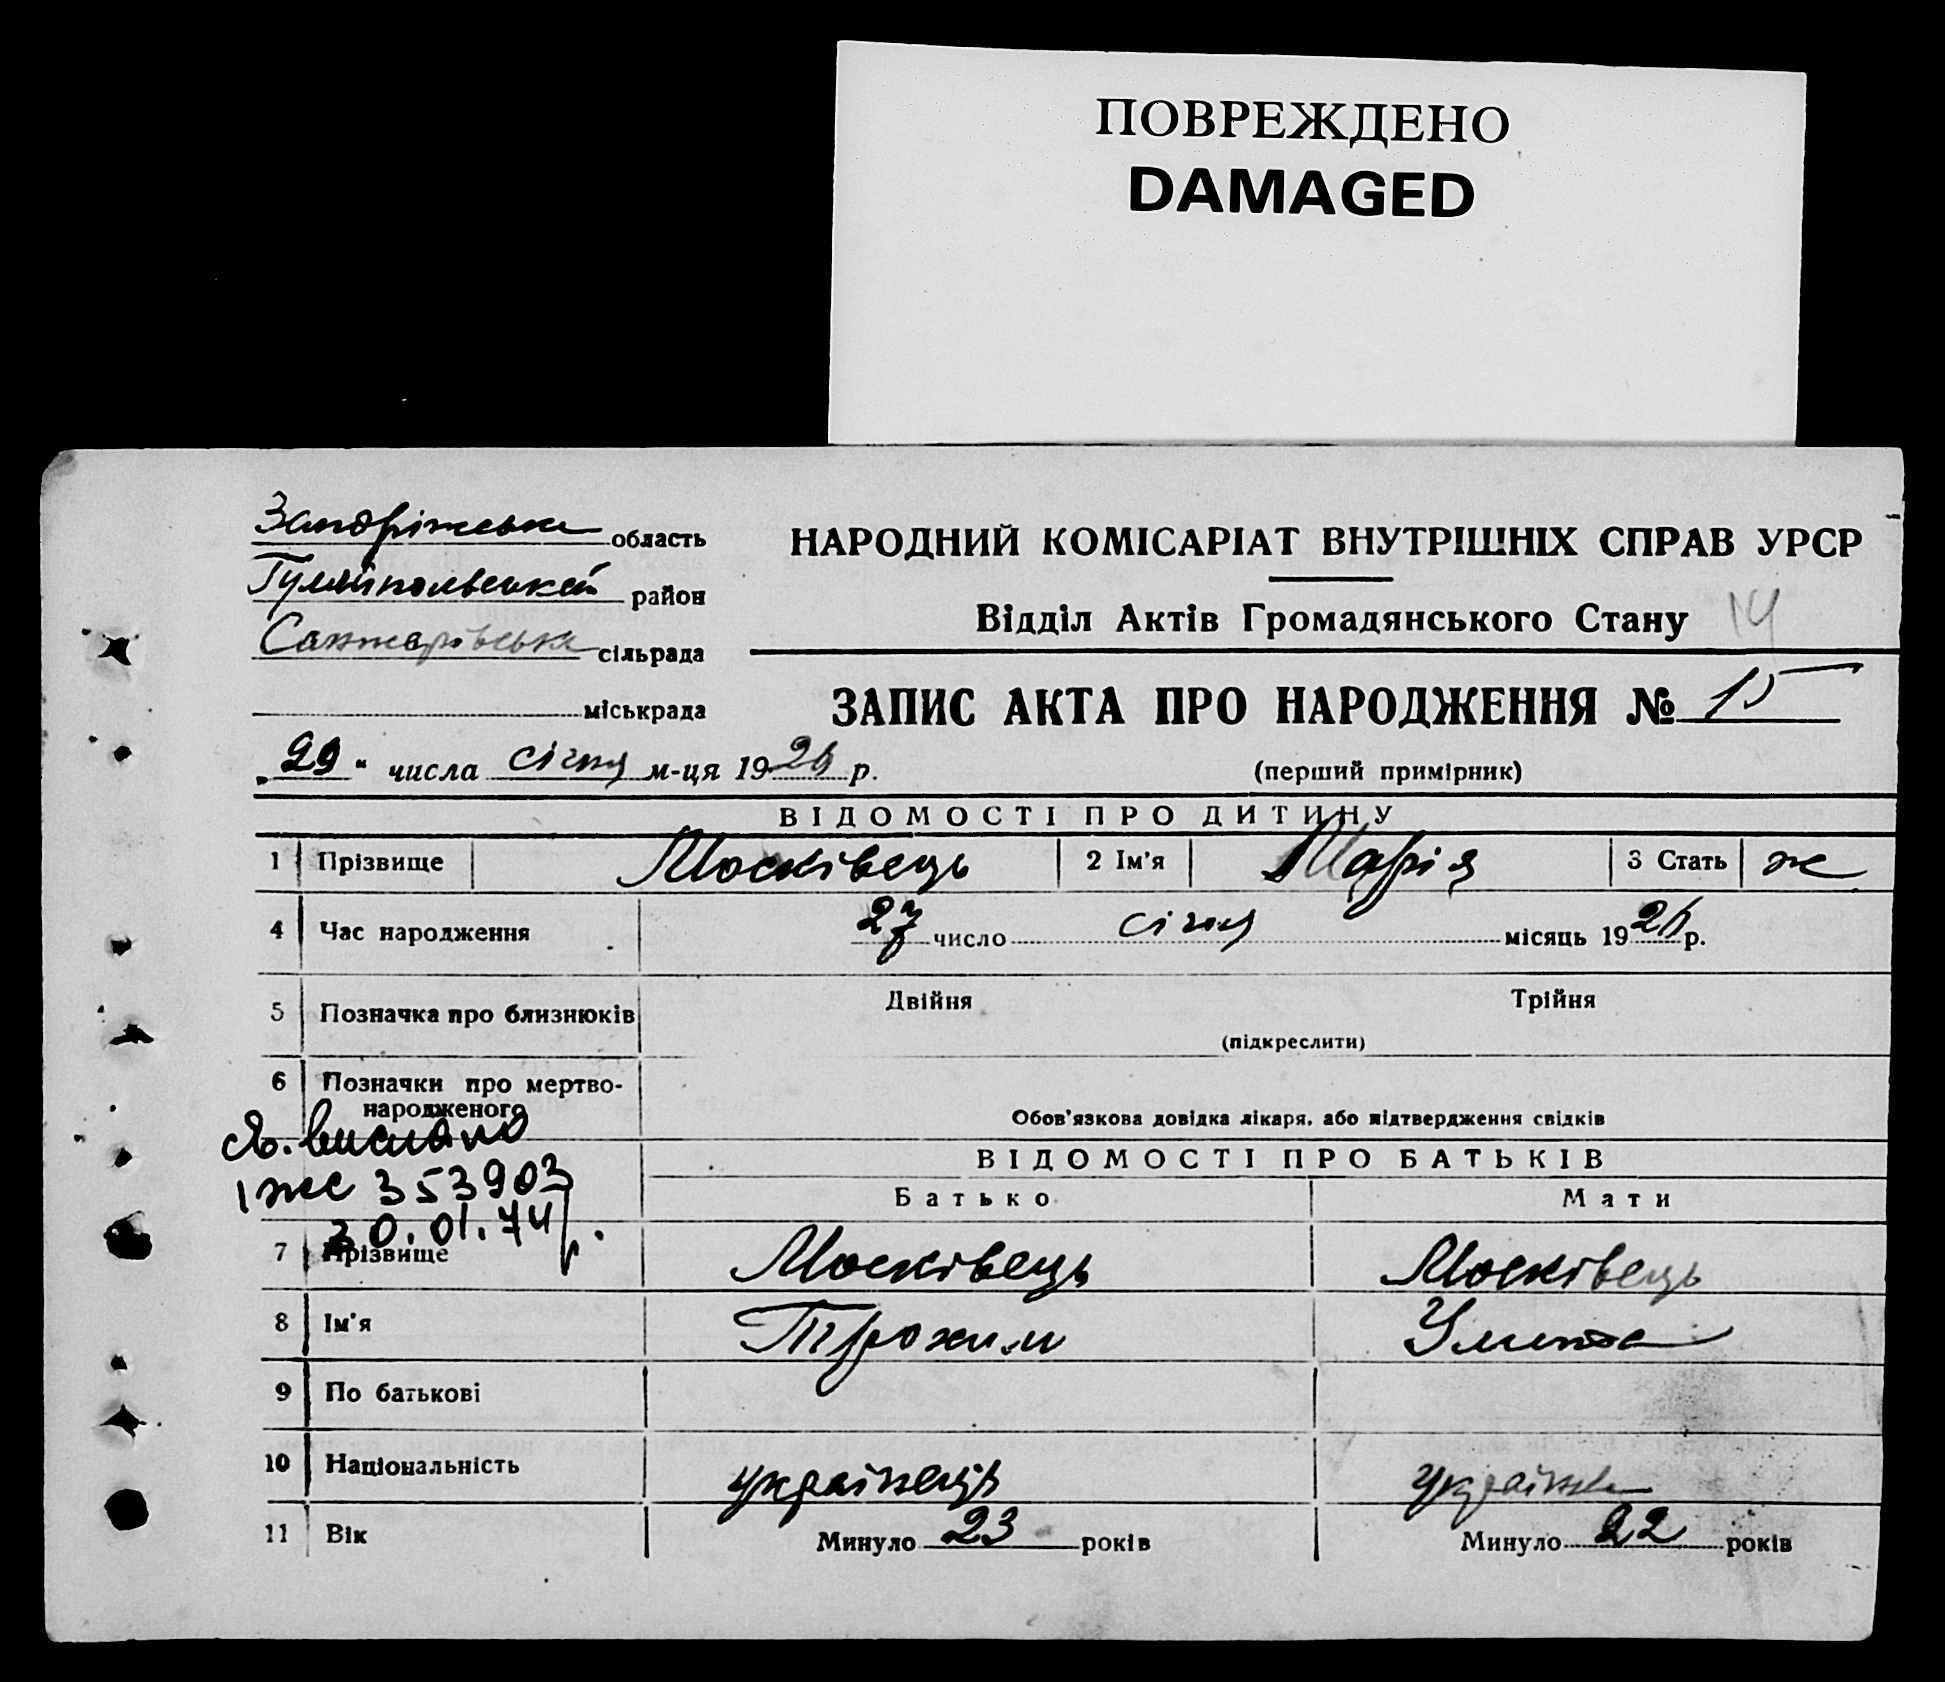 ПОВРЕЖДЕНО
DAMAGED
Запоріжська область
Гуляйпольський район
Санжарівська сільрада
міськрада
НАРОДНИЙ КОМІСАРІАТ ВНУТРІШНІХ СПРАВ УРСР
Відділ Актів Громадянського Стану 14
ЗАПИС АКТА ПРО НАРОДЖЕННЯ № 15
„29“ числа січня м-ця 1926 р.
(перший примірник)
ВІДОМОСТІ ПРО ДИТИНУ
1 Прізвище Москівець 2 Ім'я Марія 3 Стать ж
4 Час народження 27 число січня місяць 1926 р.
5 Позначка про близнюків Двійня Трійня
(підкреслити)
6 Позначки про мертво-
народженого
Обов'язкова довідка лікаря, або підтвердження свідків
св. выслано
ІЖС 353903
30.01.74 р.
ВІДОМОСТІ ПРО БАТЬКІВ
Батько Мати
7 Прізвище Москівець Москівець
8 Ім'я Трохим Улита
9 По батькові
10 Національність українець українка
11 Вік Минуло 23 років Минуло 22 років